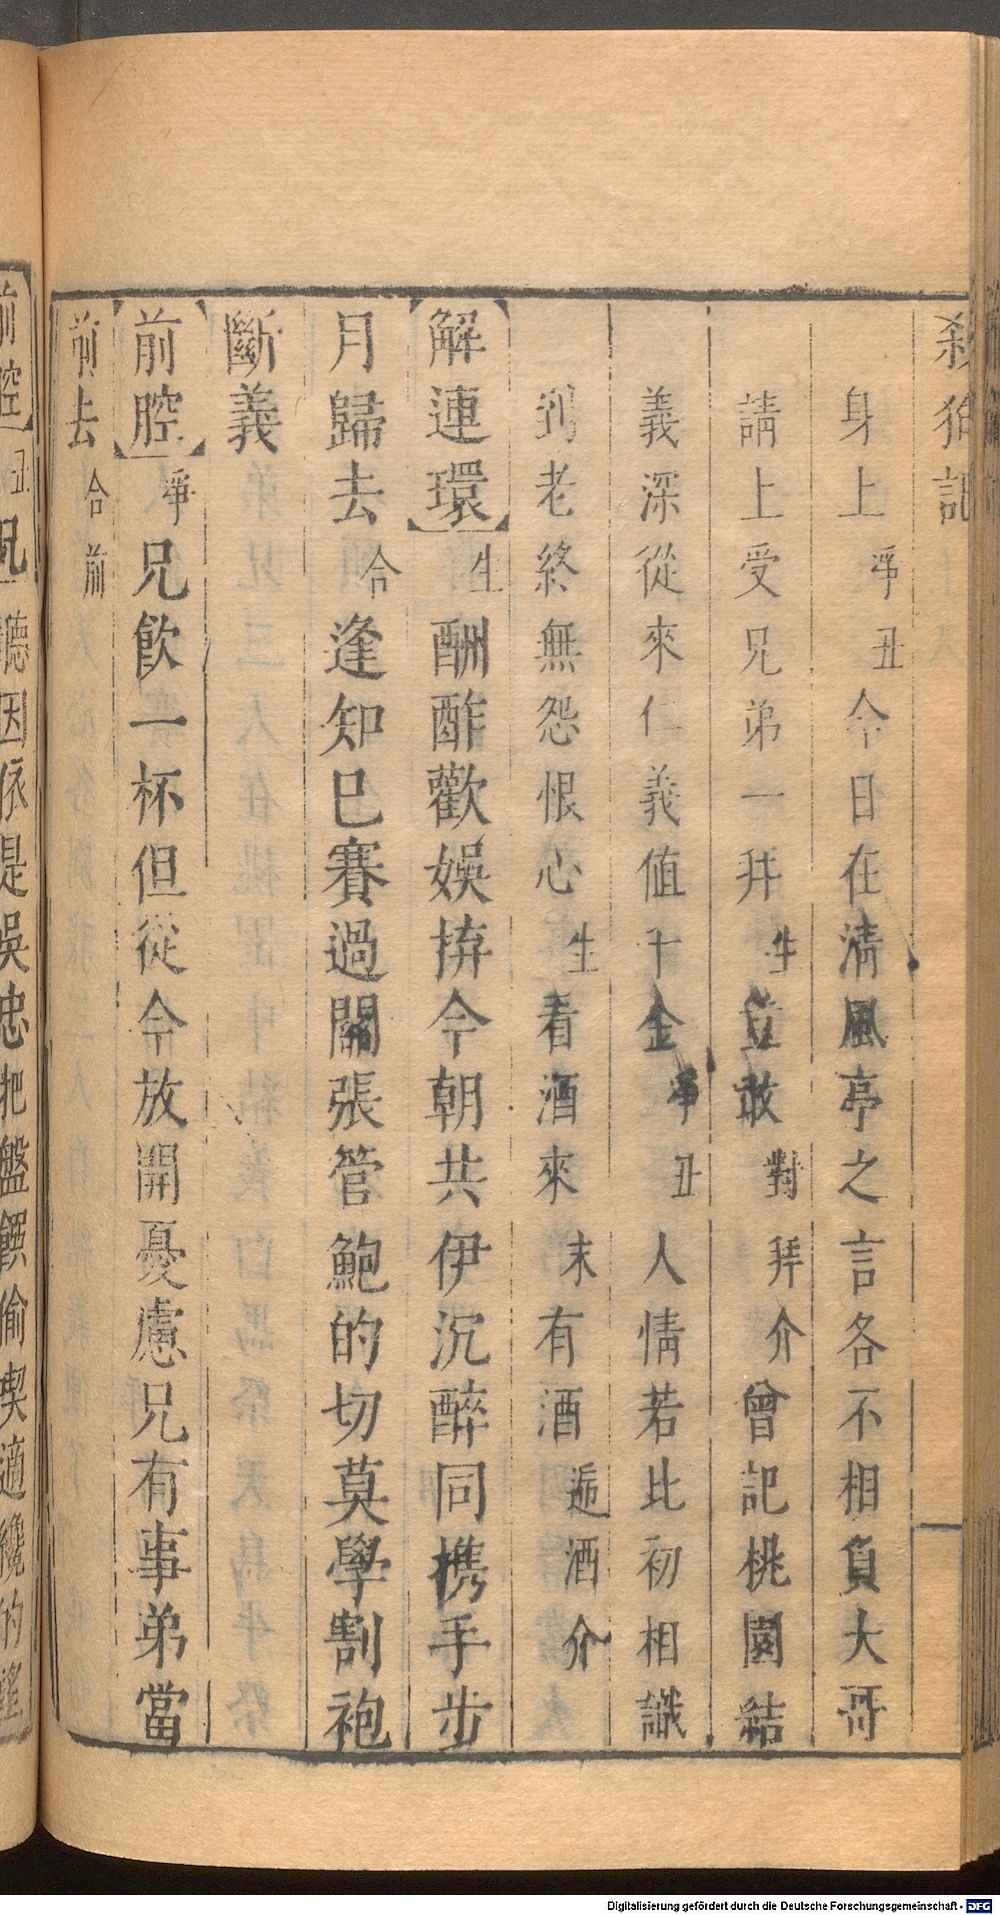 殺狗記
身上淨丑今日在清風亭之言各不相負大哥
請上受兄弟一拜生豈敢對拜介曾記桃園結
義深從來仁義值千金淨丑人情若比初相識
到老終無怨恨心生看酒來末有酒遞酒介
解連環生酬酢歡娛拚今朝共伊沉醉同携手步
月歸去合逢知巳賽過關張管鮑的切莫學割袍
斷義
前腔淨兄飲一杯但從今放開憂慮兄有事弟當
前去合前
前腔丑
聽因依是吳忠把盤饌偷喫適纔的
Digitalisierung gefördert durch die Deutsche Forschungsgemeinschaft - DFG